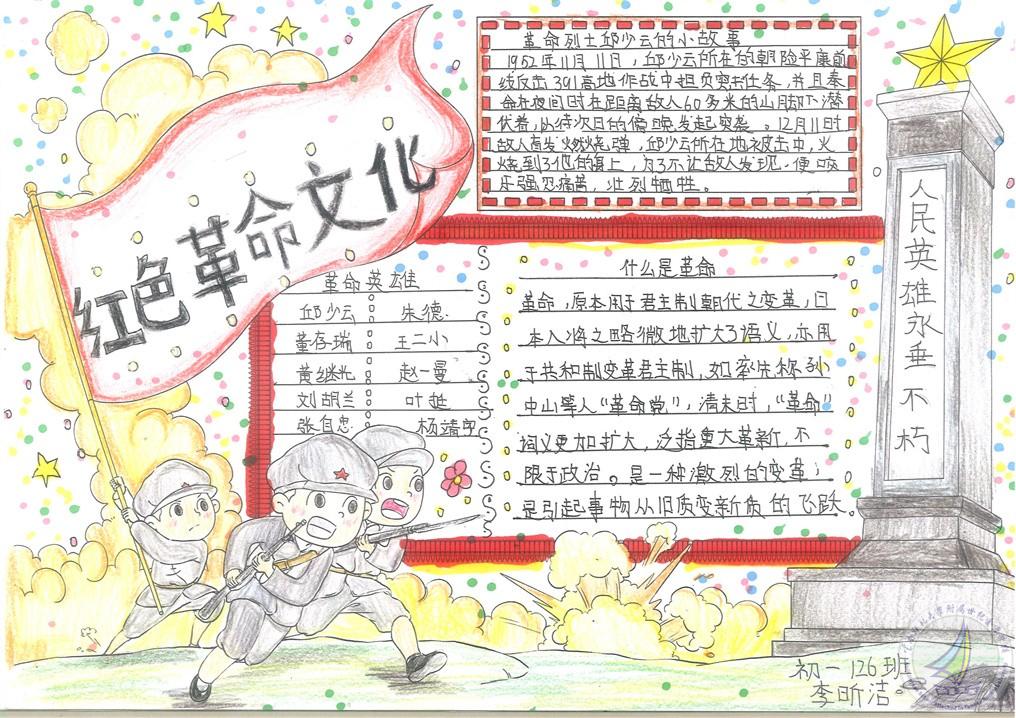 红色革命文化
革命烈士邱少云的小故事
1952年11月11日，邱少云所在的朝险平康前
线反击391高地作战中担负突击任务，并且奉
命在夜间时在距离敌人60多米的山脚下潜
伏着，以待次日的傍晚发起突袭。12月11日时
敌人高发燃烧弹，邱少云所在地被击中，火
烧到了他的身上，为了不让敌人发现，便咬
牙强忍痛苦，壮烈牺牲。
革命英雄
邱少云 朱德
董存瑞 王二小
黄继光 赵一曼
刘胡兰 叶挺
张自忠 杨靖宇
什么是革命
革命，原本用于君主制朝代之变革，日
本人将之略微地扩大了语义，亦用
于共和制变革君主制，如率先称孙
中山等人“革命党”，清末时，“革命”
词义更加扩大，泛指重大革新，不
限于政治。是一种激烈的变革；
是引起事物从旧质变新质的飞跃。
人民英雄永垂不朽
初一126班
李昕洁。